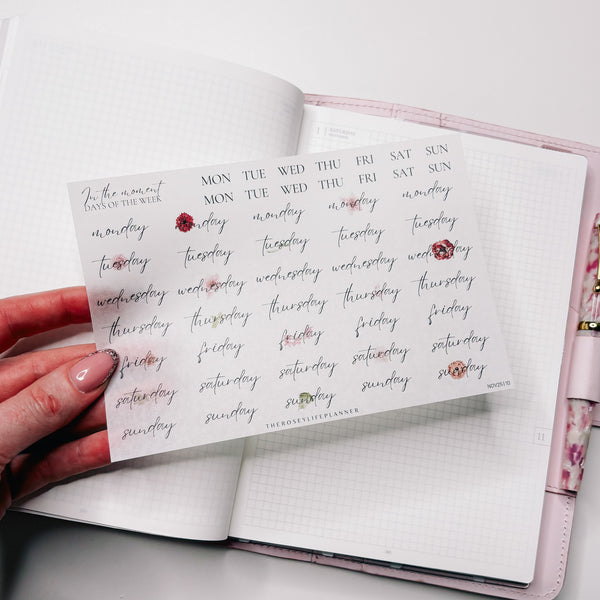 In the moment
DAYS OF THE WEEK
MON TUE WED THU FRI SAT SUN
MON TUE WED THU FRI SAT SUN
monday monday monday monday monday
tuesday tuesday tuesday tuesday tuesday
wednesday wednesday wednesday wednesday wednesday
thursday thursday thursday thursday thursday
friday friday friday friday friday
saturday saturday saturday saturday saturday
sunday sunday sunday sunday sunday
THEROSEYLIFEPLANNER
NOV25|10
1 SATURDAY
11